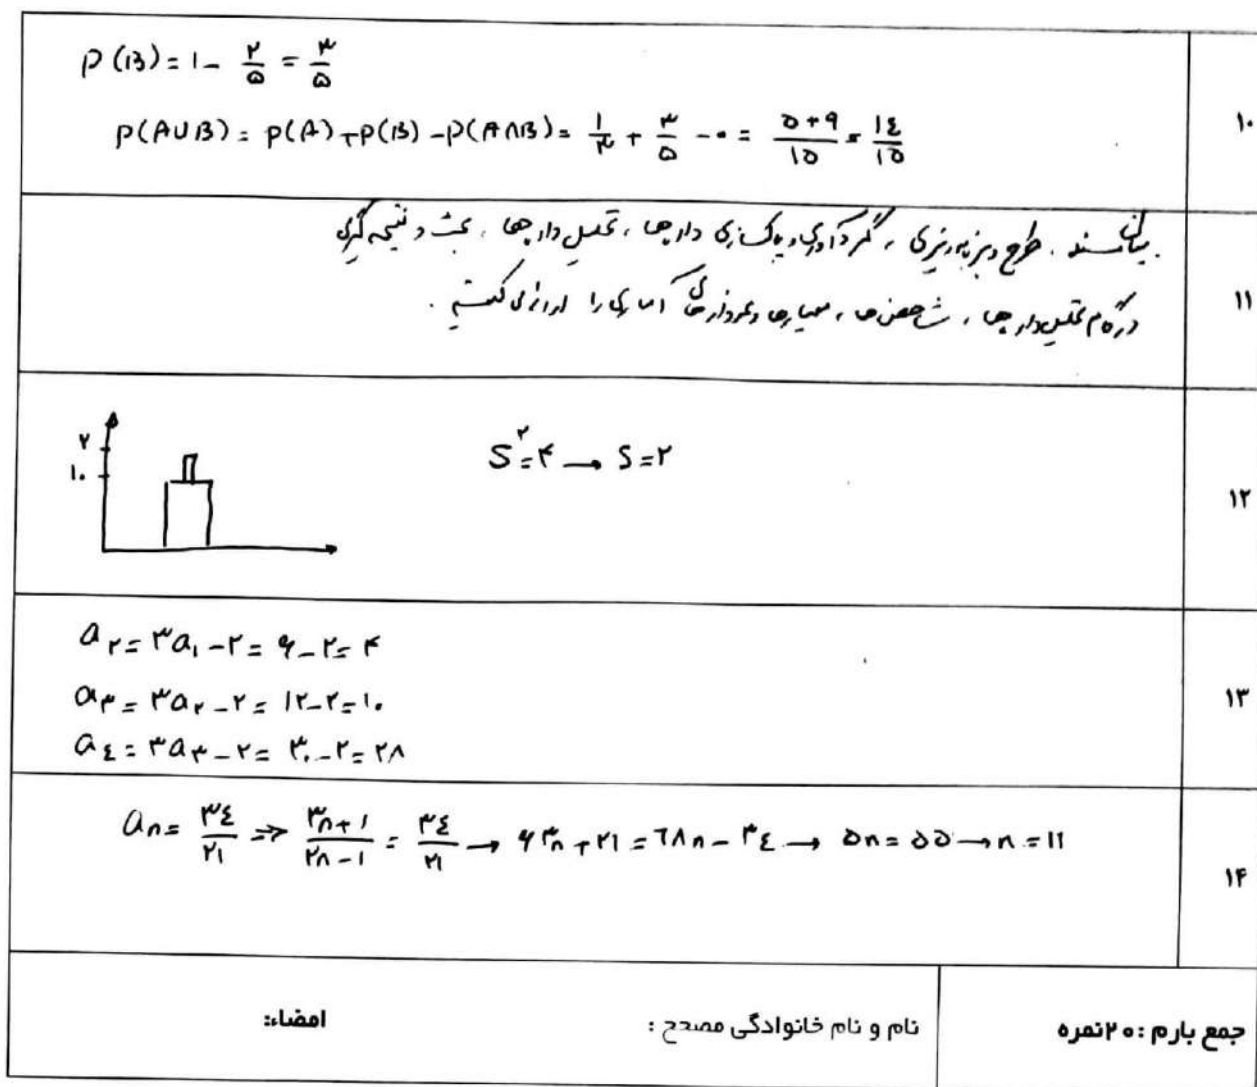 ۱۰
P(B) = ۱ - ۲/۵ = ۳/۵
P(A∪B) = P(A) + P(B) - P(A∩B) = ۱/۳ + ۳/۵ - ۰ = (۵+۹)/۱۵ = ۱۴/۱۵
۱۱
طرح و برنامه‌ریزی ، گردآوری و پاکسازی داده‌ها ، تحلیل داده‌ها ، بحث و نتیجه گیری
در گام تحلیل داده‌ها ، شاخص‌ها ، معیارها و نمودارهای آماری را
۱۲
۲
۱۰
S^۲ = ۴ → S = ۲
۱۳
a_۲ = ۳a_۱ - ۲ = ۶ - ۲ = ۴
a_۳ = ۳a_۲ - ۲ = ۱۲ - ۲ = ۱۰
a_۴ = ۳a_۳ - ۲ = ۳۰ - ۲ = ۲۸
۱۴
a_n = ۳۴/۲۱ ⇒ (۳n+۱)/(۲n-۱) = ۳۴/۲۱ → ۶۳n + ۲۱ = ۶۸n - ۳۴ → ۵n = ۵۵ → n = ۱۱
جمع بارم : ۲۰ نمره
نام و نام خانوادگی مصحح :
امضاء: